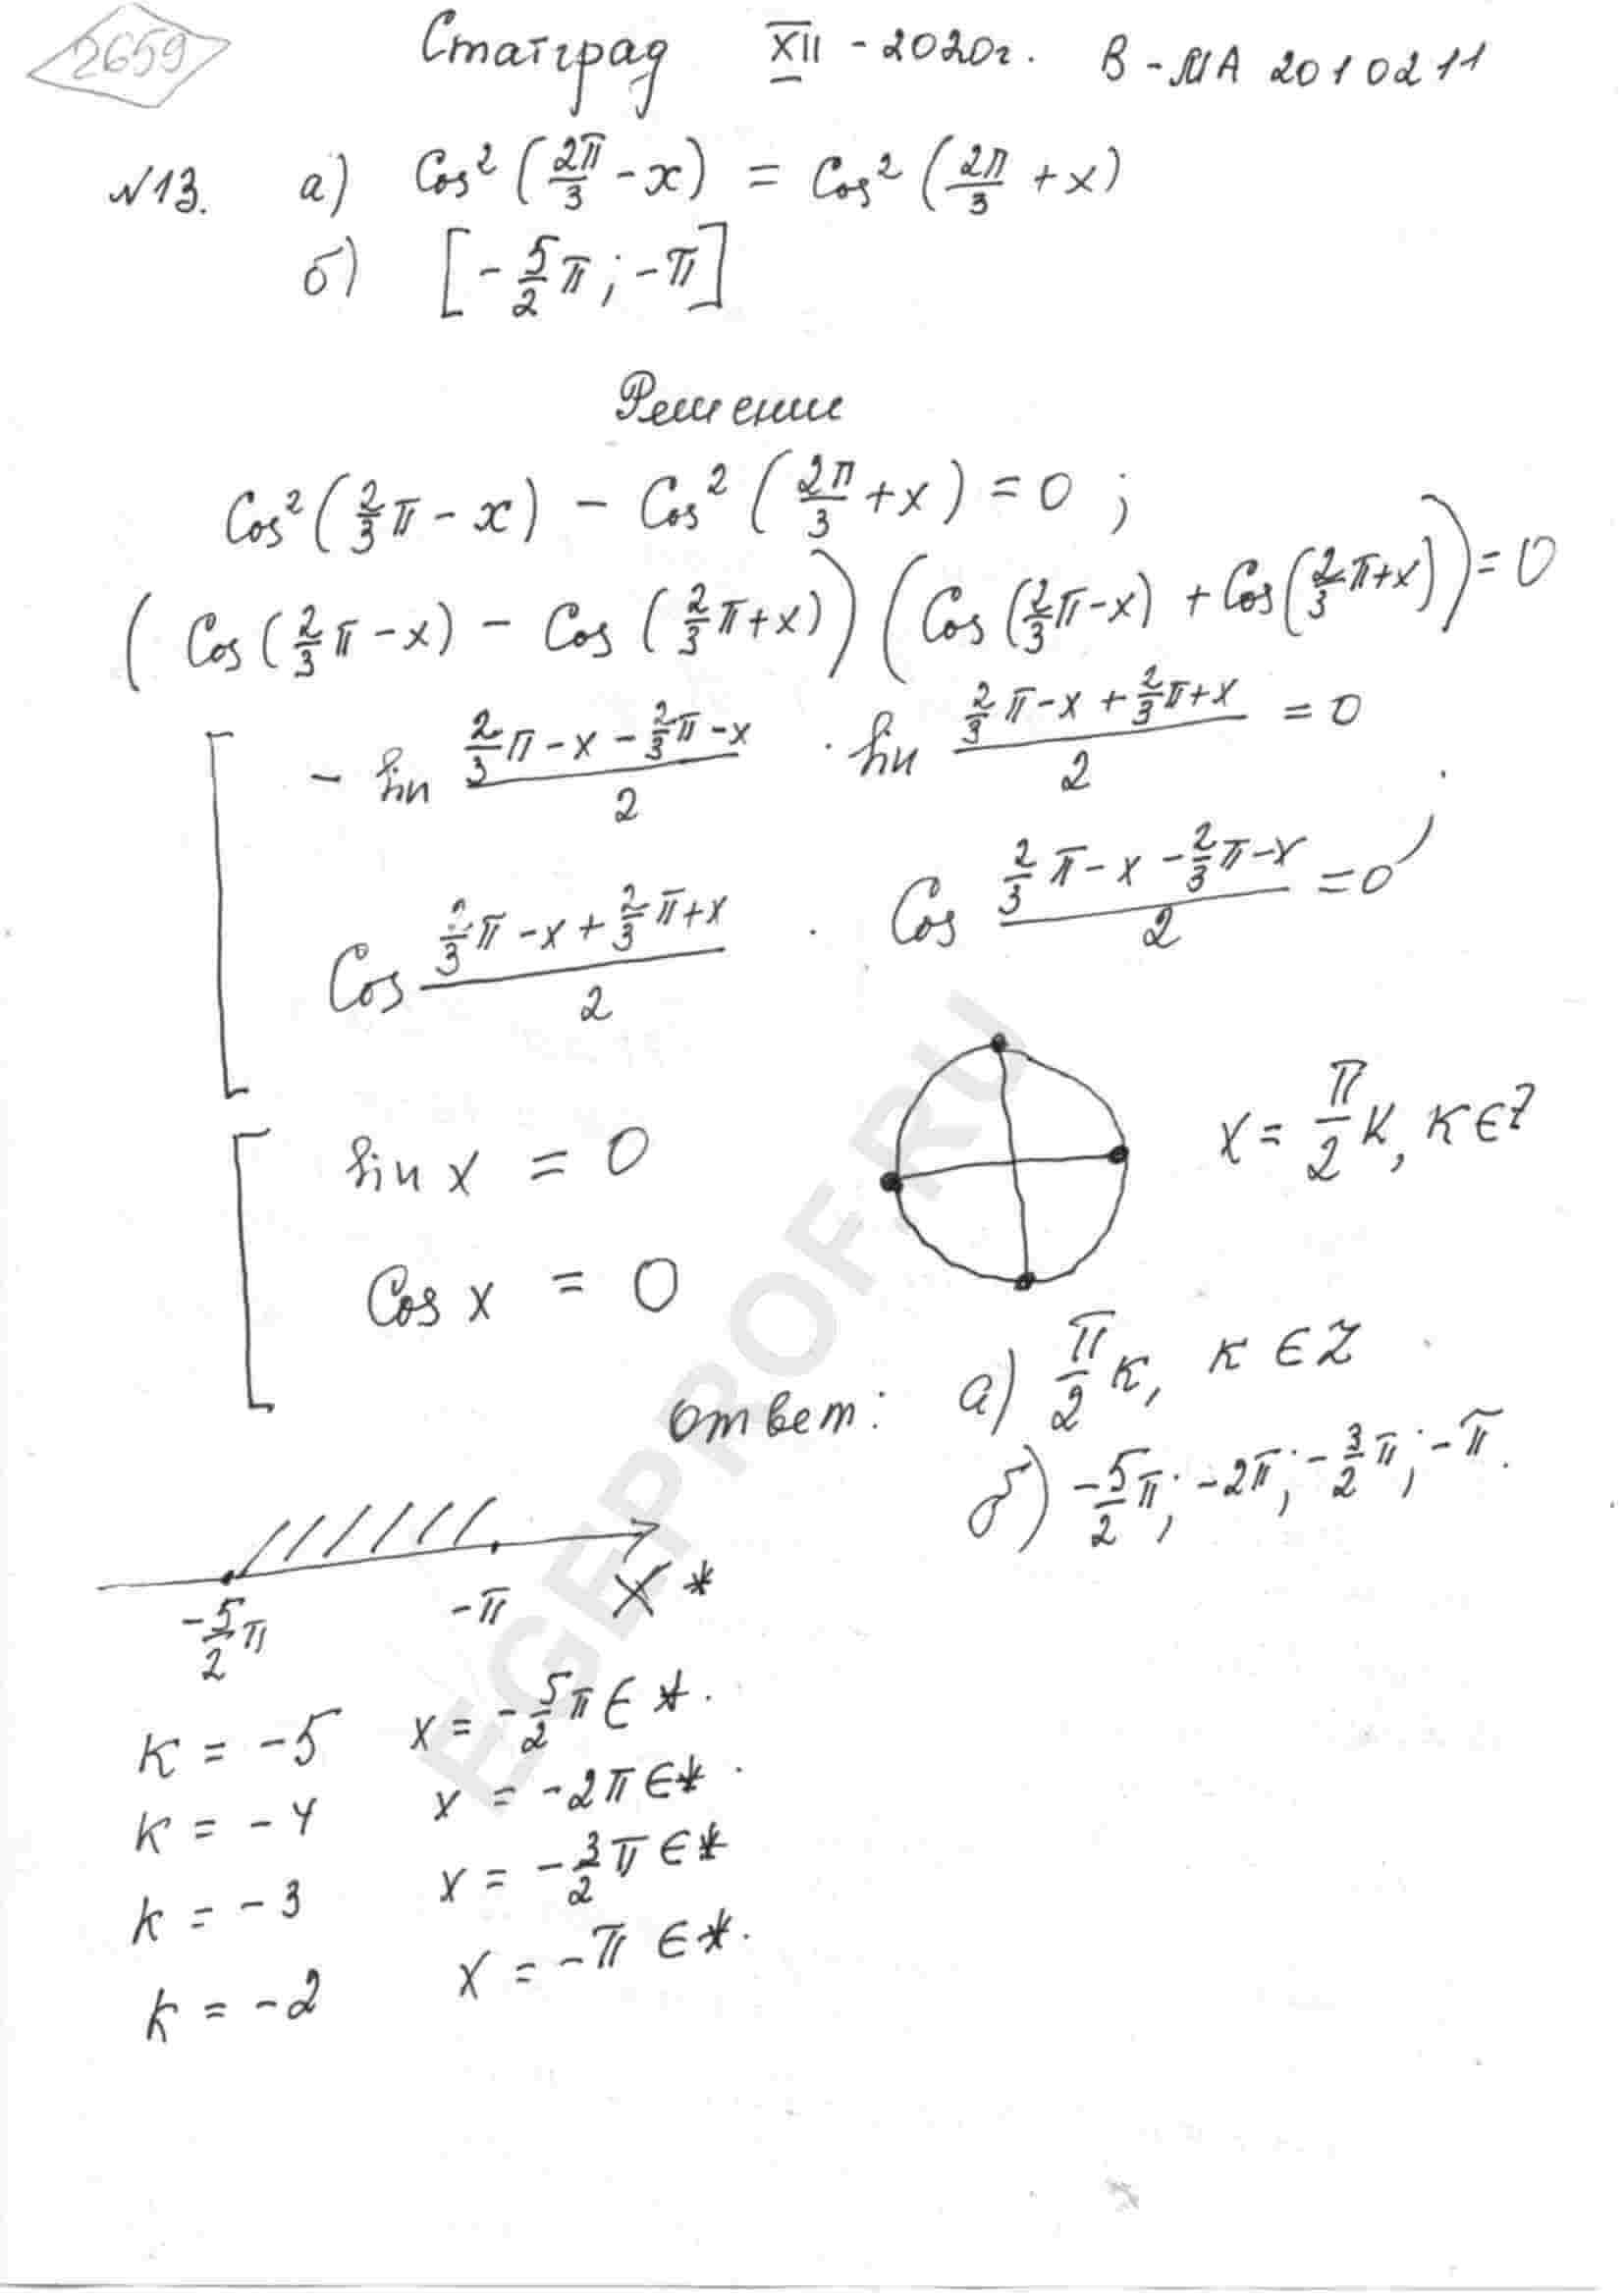 2659
Статград XII - 2020г. В - МА 2010211
№13. а) Cos² (2π/3 - x) = Cos² (2π/3 + x)
б) [-5/2 π; -π]
Решение
Cos² (2/3 π - x) - Cos² (2π/3 + x) = 0 ;
(Cos (2/3 π - x) - Cos (2/3 π + x)) (Cos (2/3 π - x) + Cos (2/3 π + x)) = 0
[ - sin (2/3 π - x - 2/3 π - x)/2 · sin (2/3 π - x + 2/3 π + x)/2 = 0
Cos (2/3 π - x + 2/3 π + x)/2 · Cos (2/3 π - x - 2/3 π - x)/2 = 0 ;
[ sin x = 0
Cos x = 0
x = π/2 k, k ∈ Z
ответ: а) π/2 k, k ∈ Z
б) -5/2 π; -2π; -3/2 π; -π.
-5/2 π -π X *
k = -5 x = -5/2 π ∈ *.
k = -4 x = -2π ∈ *.
k = -3 x = -3/2 π ∈ *
k = -2 x = -π ∈ *.
EGEPROF.RU